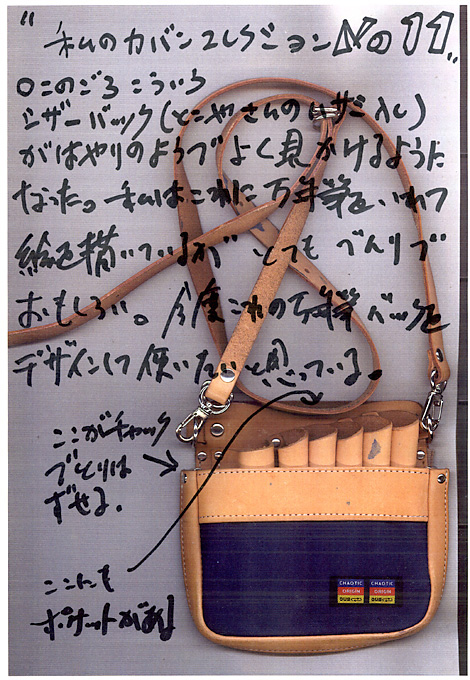 "私のカバンコレクションNo11"
○このごろこういう
シザーバック(とこやさんのハサミ入レ)
がはやりのようでよく見かけるように
なった。私はこれに万年筆をいれて
絵を描いているが とてもべんりで
おもしろい。今度これの万年筆バックを
デザインして使いたいと思っている。
ここがチャック
でとりは
ずせる。
ここにも
ポケットがある
CHAOTIC CHAOTIC
ORIGIN ORIGIN